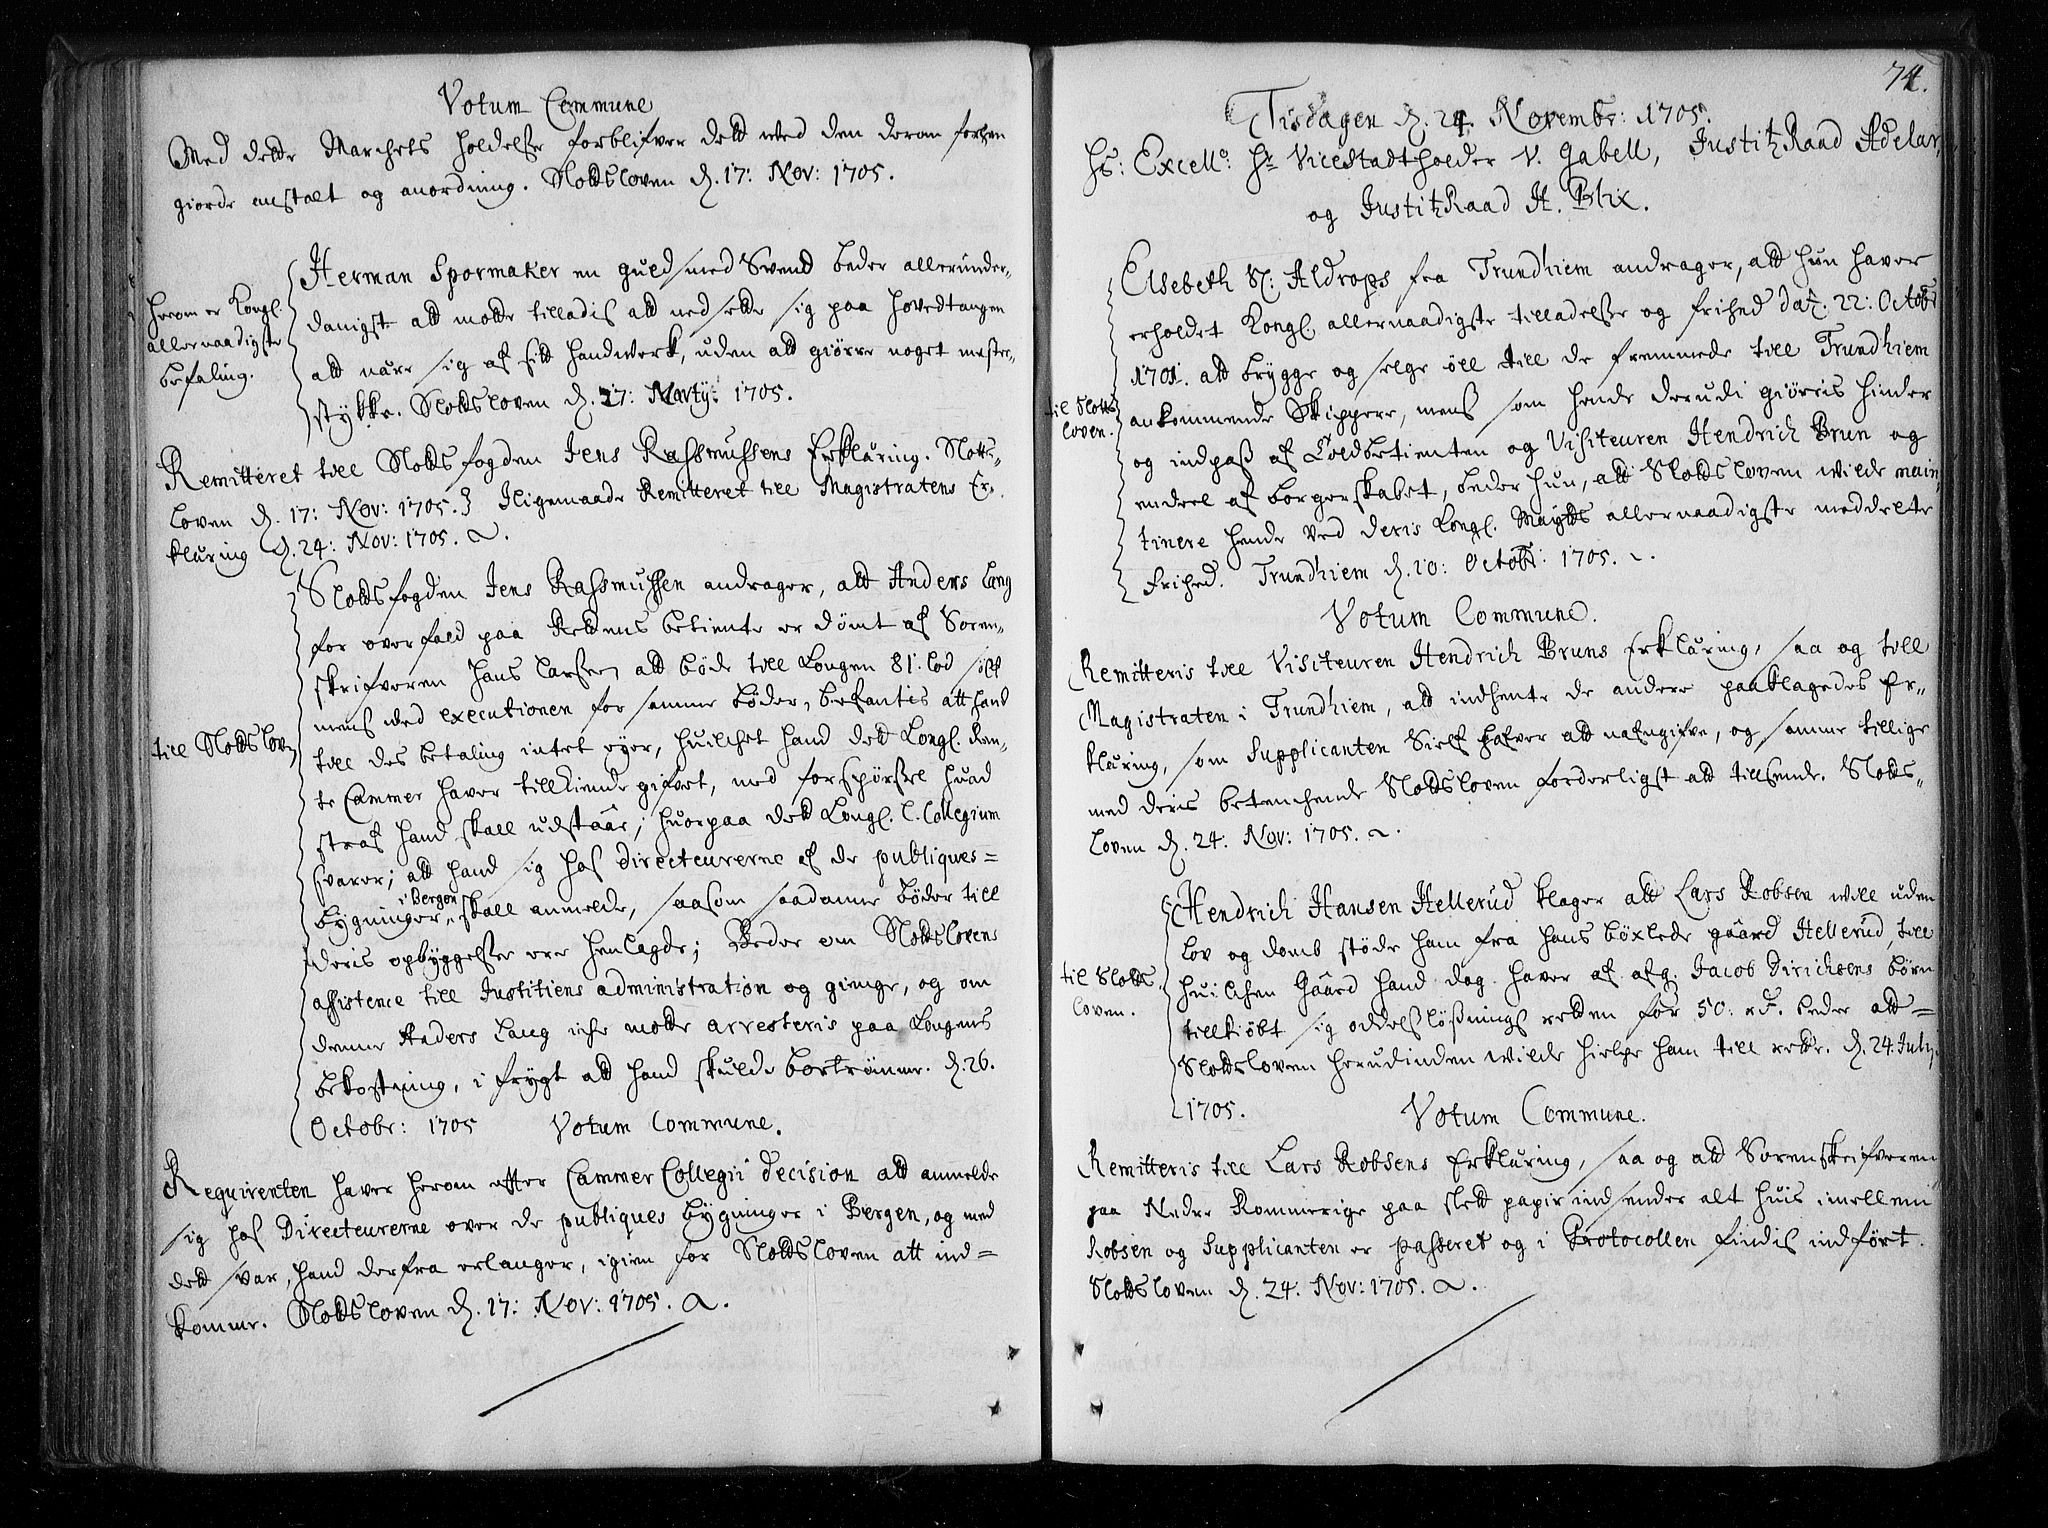 Votum Commune
Med dette Marchets holdelse forblifver dett ved den derom forhen
giorde anstalt og anordning. Slottsloven d. 17: Nov: 1705.
Herom er Kongl.
allernaadigste
befaling.
Herman Spormaker en guldsmed Svend beder allerunder-
danigst att motte tilladis att nedsette sig paa Hovedtangen
att nære sig af sitt Handwerk, uden att giørre noget mester-
stykke. Slottsloven d. 27: Marty: 1705.
Remitteret till Slottsfogden Jens Rassmussens Erklæring. Slotts-
loven d. 17: Nov: 1705. } Iligemaade Remitteret till Magistratens Er-
klæring d. 24: Nov: 1705.
till Slottslov
Slottsfogden Jens Rassmussen andrager, att Anders Lang
for overfald paa Rettens betiente er dømt af Soren-
skrifveren Hans Larsen att bøde till Kongen 81. lod sølf
mens ved executionen for samme bøder, befantis att hand
till des betaling intet eyer, huilchet hand dett Kongl. Ren-
te Cammer haver tillkiende gifvet, med forspørsel huad
straf hand skall udstaae; huorpaa dett Kongl. C. Collegium
svarer; att hand sig hos Directeurerne af de publiques=
i Bergen
bygninger, skall anmelde, saasom saadanne bøder till
deris opbyggelse ere henlagde; Beder om Slottslovens
assistence till Justitiens administration og gienge, og om
denne Anders Lang iche motte arresteris paa Kongens
bekostning, i frygt att hand skulde bortrømme. d. 26.
Octobr: 1705 Votum Commune.
Requirenten haver herom efter Cammer Collegii decision att anmelde
sig hos Directeurerne over de publiques bygninger i Bergen, og med
dett svar, hand derfra erlanger, igien for Slottsloven att ind=
komme. Slottsloven d. 17: Nov: 1705.
74.
Tisdagen d. 24. Novembr: 1705.
Hs: Excell: Hr Vicestadtholder V. Gabell, JustitzRaad Adelar,
og JustitzRaad H. Blix.
til Slotts
loven.
Elsebeth Sl: Aldrops fra Trundhiem andrager, att hun haver
erholdet Kongl. allernaadigste tilladelse og frihed dat. 22: Octobr
1701. att brygge og selge øll till de fremmede till Trundhiem
ankommende Skippere, mens som hende derudi giøres hinder
og indpass af Toldbetienten og Visiteuren Hendrich Brun og
endeel af borgerskabet, beder hun, att Slottsloven wilde main-
tinere hende ved deris Kongl. Mayts allernaadigste meddeelte
Frihed. Trundhiem d. 10: Octobr: 1705.
Votum Commune.
Remitteris till Visiteuren Hendrich Bruns Erklæring, saa og till
Magistraten i Trundhiem, att indhente de andere paaklagedes Er-
klæring, som Supplicanten Sielf hafver att nafngifve, og samme tillige
med deris betenchende Slottsloven forderligst att tillsende. Slotts-
loven d. 24: Nov: 1705.
til Slotts
loven.
Hendrich Hansen Hellerud klager att Lars Robsen will uden
lov og domb støde ham fra hans bøxlede gaard Hellerud, till
huilchen Gaard hand dog haver af afg. Jacob Dirichsens børn
tillkiøbt sig oddelsløsnings retten for 50: rd. beder att=
Slottsloven herudinden wilde hielpe ham till rette. d. 24: July
1705. Votum Commune.
Remitteris till Lars Robsens Erklæring, saa og att Sorenskrifveren
paa Nedre Rommerige paa slett papir indsender alt huis imellem
Robsen og Supplicanten er passeret og i Protocollen findis indført.
Slottsloven d. 24: Nov: 1705.